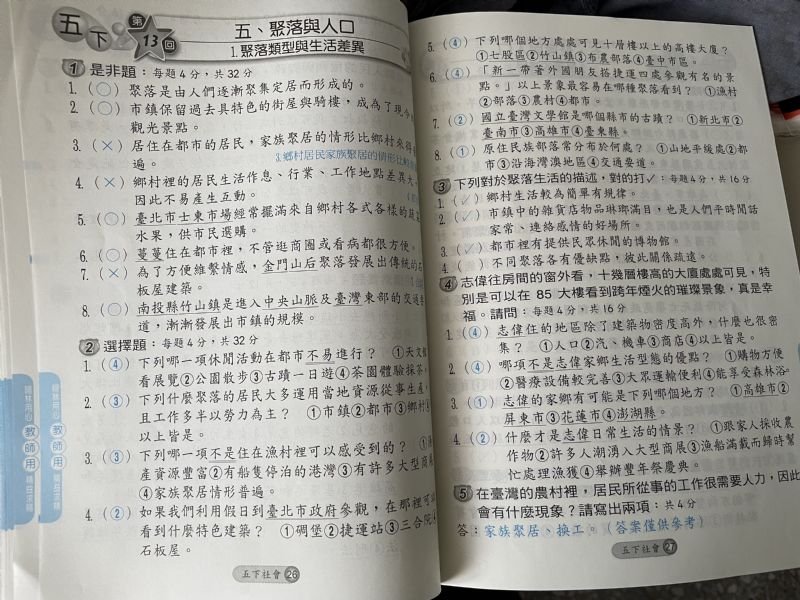 五下 第13回
五、聚落與人口
1.聚落類型與生活差異
1 是非題：每題4分，共32分
1. (○) 聚落是由人們逐漸聚集定居而形成的。
2. (○) 市鎮保留過去具特色的街屋與騎樓，成為了現今
觀光景點。
3. (×) 居住在都市的居民，家族聚居的情形比鄉村來得
遍。
3.鄉村居民家族聚居的情形比
4. (×) 鄉村裡的居民生活作息、行業、工作地點差異大
因此不易產生互動。
5. (○) 臺北市士東市場經常擺滿來自鄉村各式各樣的蔬
水果，供市民選購。
6. (○) 蔓蔓住在都市裡，不管逛商圈或看病都很方便。
7. (×) 為了方便維繫情感，金門山后聚落發展出傳統的石
板屋建築。
8. (○) 南投縣竹山鎮是進入中央山脈及臺灣東部的交通
道，漸漸發展出市鎮的規模。
2 選擇題：每題4分，共32分
1. (4) 下列哪一項休閒活動在都市不易進行？ ①天文
看展覽②公園散步③古蹟一日遊④茶園體驗採茶
2. (3) 下列什麼聚落的居民大多運用當地資源從事生產，
且工作多半以勞力為主？ ①市鎮②都市③鄉村④
以上皆是。
3. (3) 下列哪一項不是住在漁村裡可以感受到的？ ①
產資源豐富②有船隻停泊的港灣③有許多大型商
④家族聚居情形普遍。
4. (2) 如果我們利用假日到臺北市政府參觀，在那裡可
看到什麼特色建築？ ①碉堡②捷運站③三合院④
石板屋。
五下社會 26
教師用
教師用
5. (4) 下列哪個地方處處可見十層樓以上的高樓大廈？
①七股區②竹山鎮③布農部落④臺中市區。
6. (4) 「新一帶著外國朋友搭捷運四處參觀有名的景
點。」以上景象最容易在哪種聚落看到？ ①漁村
②部落③農村④都市。
7. (2) 國立臺灣文學館是哪個縣市的古蹟？ ①新北市②
臺南市③高雄市④臺東縣。
8. (1) 原住民族部落常分布於何處？ ①山地平緩處②都
市③沿海灣澳地區④交通要道。
3 下列對於聚落生活的描述，對的打✓：每題4分，共16分
1. (✓) 鄉村生活較為簡單有規律。
2. (✓) 市鎮中的雜貨店物品琳瑯滿目，也是人們平時閒話
家常、連絡感情的好場所。
3. (✓) 都市裡有提供民眾休閒的博物館。
4. ( ) 不同聚落各有優缺點，彼此關係疏遠。
4 志偉往房間的窗外看，十幾層樓高的大廈處處可見，特
別是可以在 85 大樓看到跨年煙火的璀璨景象，真是幸
福。請問：每題4分，共16分
1. (4) 志偉住的地區除了建築物密度高外，什麼也很密
集？ ①人口②汽、機車③商店④以上皆是。
2. (4) 哪項不是志偉家鄉生活型態的優點？ ①購物方便
②醫療設備較完善③大眾運輸便利④能享受森林浴。
3. (1) 志偉的家鄉有可能是下列哪個地方？ ①高雄市②
屏東市③花蓮市④澎湖縣。
4. (2) 什麼才是志偉日常生活的情景？ ①跟家人採收農
作物②許多人潮湧入大型商展③漁船滿載而歸時幫
忙處理漁獲④舉辦豐年祭慶典。
5 在臺灣的農村裡，居民所從事的工作很需要人力，因此
會有什麼現象？請寫出兩項：共4分
答：家族聚居、換工。（答案僅供參考）
五下社會 27